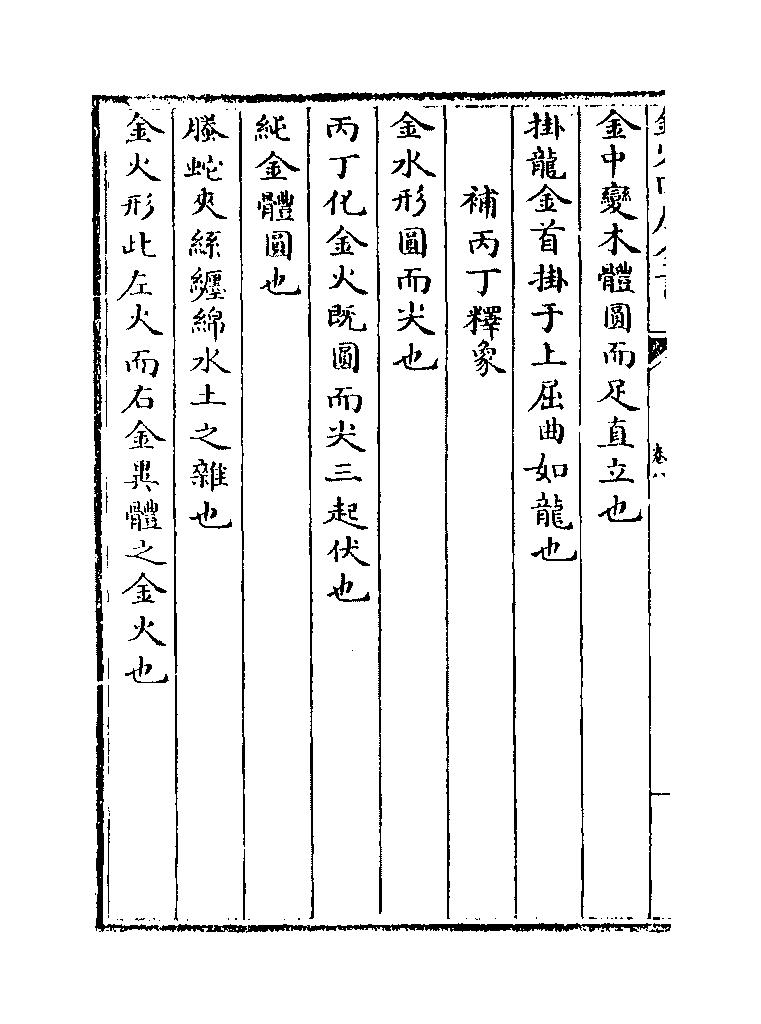 金中變木體圓而足直立也
掛龍金首掛于上屈曲如龍也
補丙丁釋象
金水形圓而尖也
丙丁化金火既圓而尖三起伏也
純金體圓也
螣蛇夾絲纒綿水土之雜也
金火形此左火而右金異體之金火也